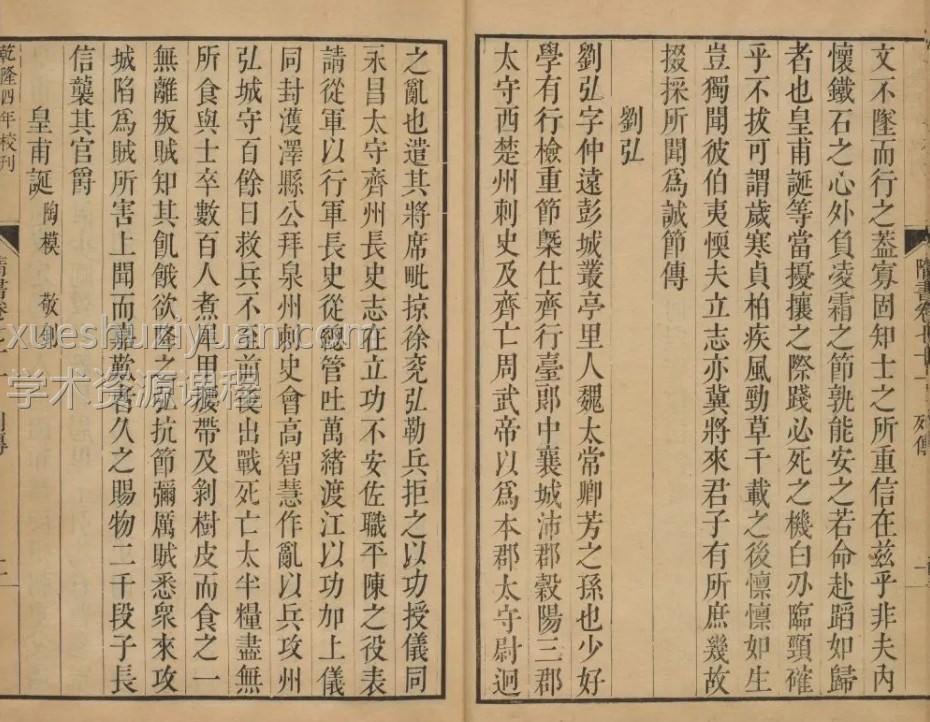 文不墜而行之蓋寡固知士之所重信在兹乎非夫內
懷鐵石之心外負凌霜之節孰能安之若命赴蹈如歸
者也皇甫誕等當擾攘之際踐必死之機白刃臨頸確
乎不拔可謂歲寒貞柏疾風勁草千載之後懍懍如生
豈獨聞彼伯夷懦夫立志亦冀將來君子有所庶幾故
掇採所聞為誠節傳
劉弘
劉弘字仲遠彭城叢亭里人魏太常卿芳之孫也少好
學有行檢重節槩仕齊行臺郎中襄城沛郡穀陽三郡
太守西楚州刺史及齊亡周武帝以為本郡太守尉迥
之亂也遣其將席毗掠徐兖弘勒兵拒之以功授儀同
永昌太守齊州長史志在立功不安佐職平陳之役表
請從軍以行軍長史從總管吐萬緒渡江以功加上儀
同封濩澤縣公拜泉州刺史會高智慧作亂以兵攻州
弘城守百餘日救兵不至前後出戰死亡太半糧盡無
所食與士卒數百人煮犀甲腰帶及剝樹皮而食之一
無離叛賊知其飢餓欲降之弘抗節彌厲賊悉衆來攻
城陷為賊所害上聞而嘉歎者久之賜物二千段子長
信襲其官爵
皇甫誕 陶模 敬釗
乾隆四年校刊
隋書卷七十一 列傳
xueshuziyuan.com
学术资源课程